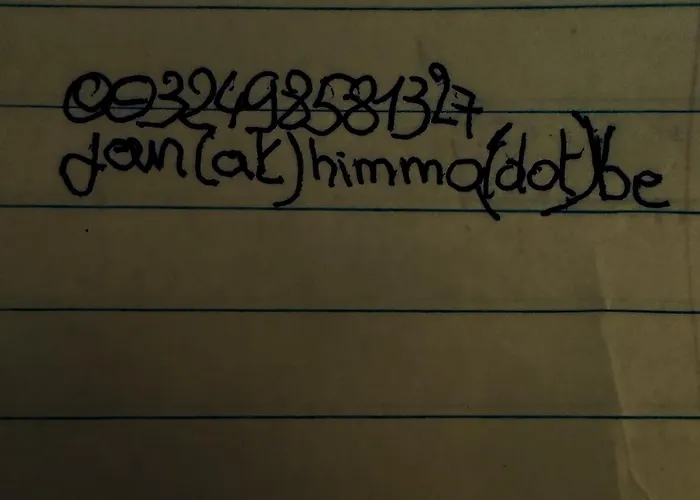 0032498581327
join(at)himma(dot)be